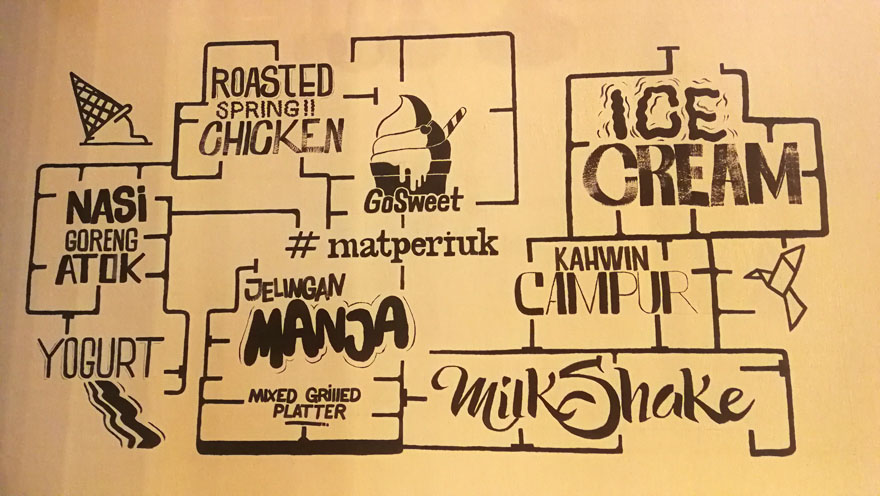 ROASTED
SPRING!!
CHICKEN
GoSweet
ICE
CREAM
NASi
GORENG
ATOK
# matperiuk
KAHWIN
CAMPUR
JELINGAN
MANJA
YOGURT
MIXED GRillED
PLATTER
MilkShake